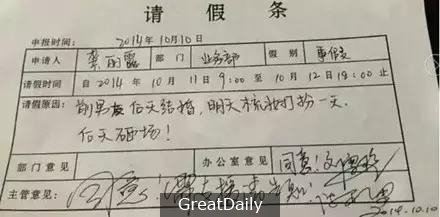 请假条
申报时间: 2014年10月10日
申请人 龚丽露 部门 业务部 假别 事假
请假时间 自 2014 年 10 月 11 日 9:00 至 10 月 12 日 18:00 止
请假原因: 前男友后天结婚,明天梳妆打扮一天,
后天砸场!
部门意见 办公室意见 同意!
主管意见: 同意!
2014.10.10
GreatDaily